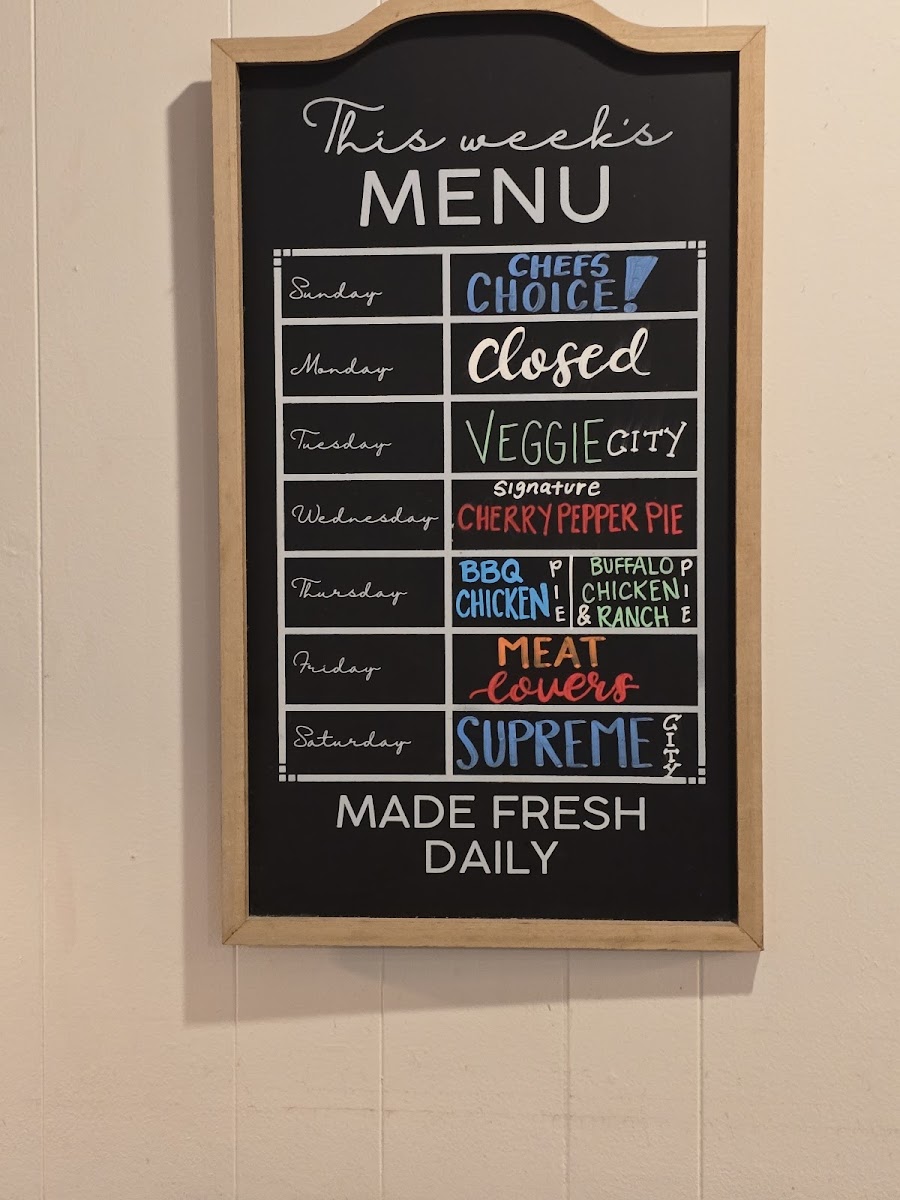 This week's
MENU
Sunday
CHEFS
CHOICE!
Monday
Closed
Tuesday
VEGGIE CITY
Wednesday
Signature
CHERRY PEPPER PIE
Thursday
BBQ
CHICKEN
PIE
BUFFALO
CHICKEN
& RANCH
PIE
Friday
MEAT
Lovers
Saturday
SUPREME CITY
MADE FRESH
DAILY